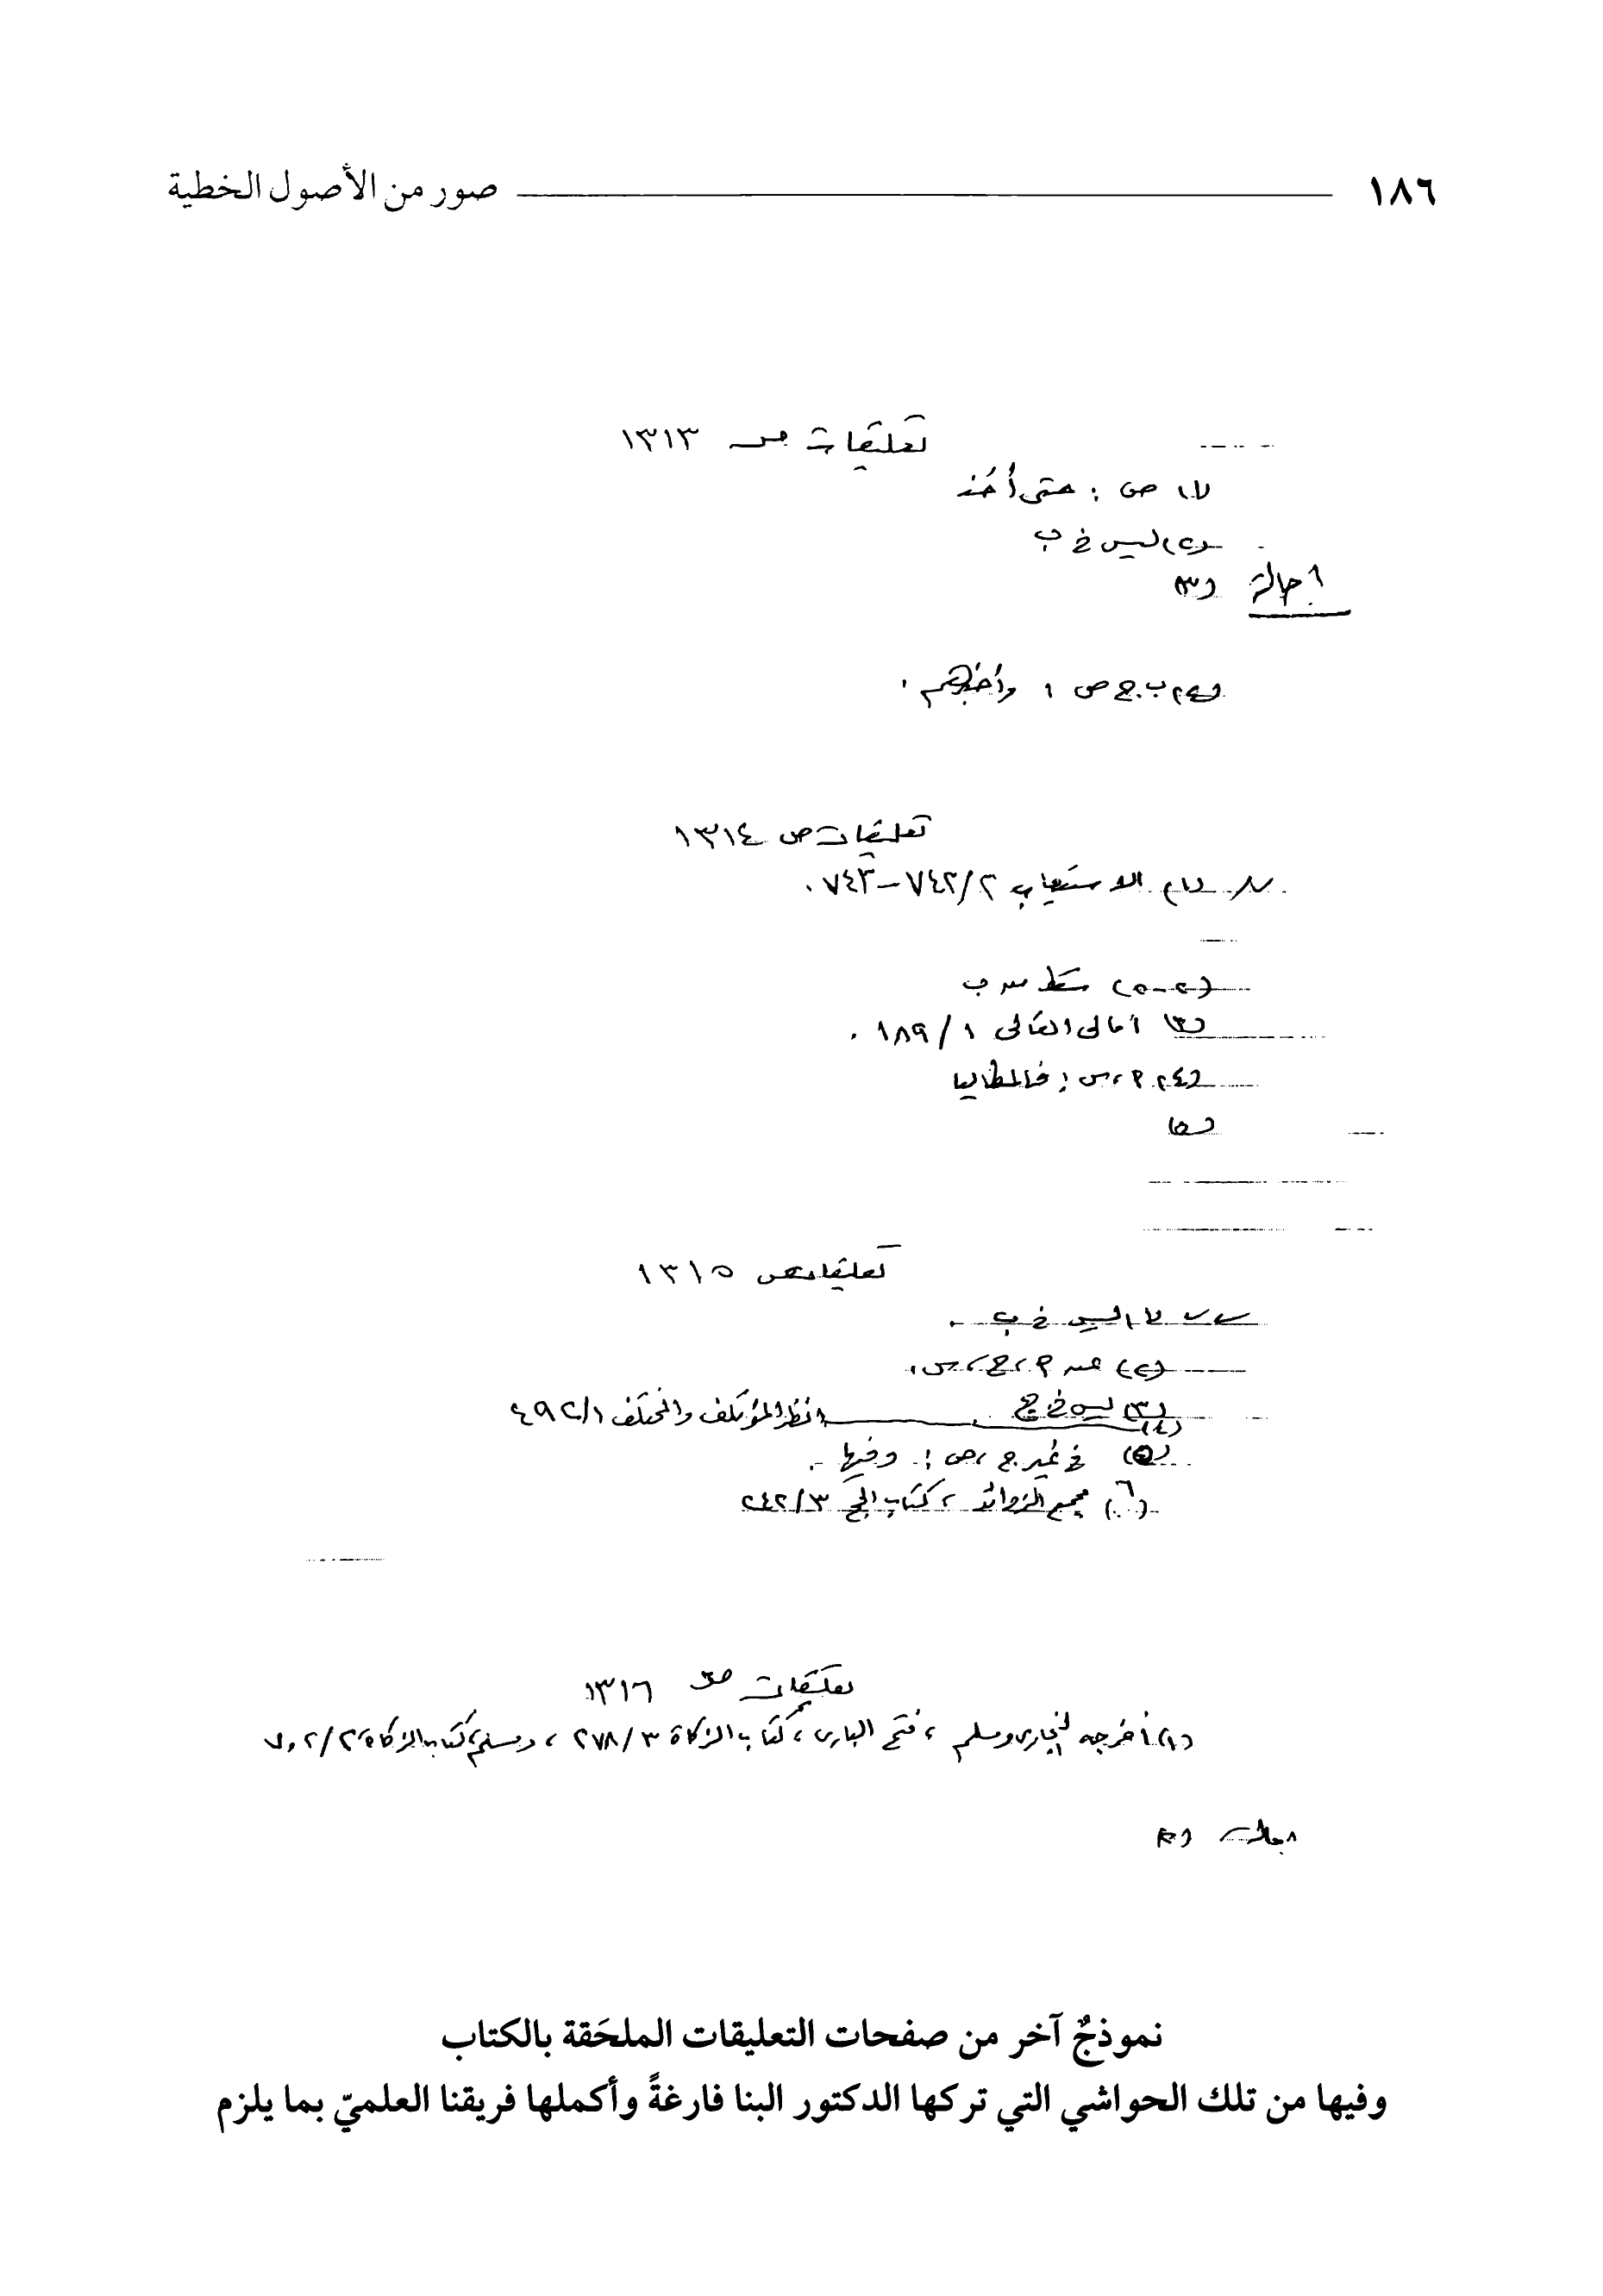 ١٨٦ صور من الأصول الخطية
تعليقات ص ١٣١٣
(١) ص : حتى أخذ
(٢) ليس في ب
إحالة (٣)
(٤) ب. ج ص : وأخبرهم .
تعليقات ص ١٣١٤
(١) الاستيعاب ٧٤٢/٢ – ٧٤٣ .
(٢-٥) سقط من ب
(٣) أمالي القالي ١ / ١٨٩ .
(٤) م ، س :
(٥)
تعليقات ص ١٣١٥
(١) ليس في ب .
(٢) عن م ، ج ، س .
(٣) ليس في ج
(٤) انظر المؤتلف والمختلف ٤٩٢/١
(٥) في غير ج ، ص : وفيها .
(٦) مجمع الزوائد ، كتاب الحج ٢٤٢/٣
تعليقات ص ١٣١٦
(١) أخرجه البخاري ومسلم ، فتح الباري ، كتاب الزكاة ٢٧٨/٣ ، ومسلم ، كتاب الزكاة
إحالة
نموذجٌ آخر من صفحات التعليقات الملحَقة بالكتاب
وفيها من تلك الحواشي التي تركها الدكتور البنا فارغةً وأكملها فريقنا العلميّ بما يلزم